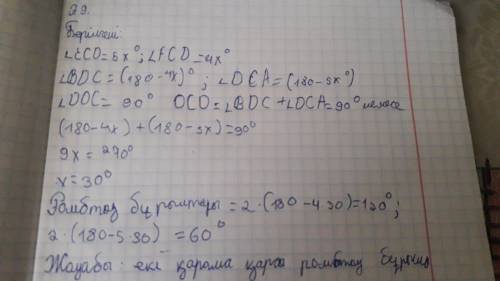 29.
Берілгені:
∠ECD=5x°; ∠FCD=4x°
∠BDC=(180-4x)°; ∠DCA=(180-5x°)
∠DOC= 90° OCD=∠BDC+∠DCA=90° немесе
(180-4x)+(180-5x)=90°
9x=270°
x=30°
Ромбтың бұрыштары =2·(180-4·30)=120°;
2·(180-5·30)=60°
Жауабы: екі қарама қарсы ромбтың бұрышы